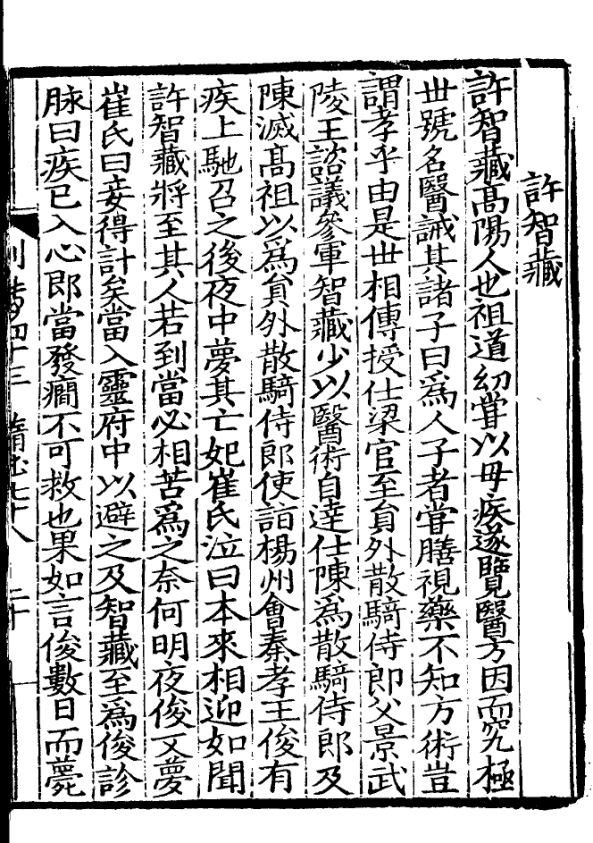 許智藏
許智藏髙陽人也祖道幼甞以母疾遂覽醫方因而究極
世號名醫誡其諸子曰爲人子者甞膳視藥不知方術豈
謂孝乎由是世相傳授仕梁官至員外散騎侍郎父景武
陵王諮議參軍智藏少以醫術自達仕陳爲散騎侍郎及
陳滅髙祖以爲員外散騎侍郎使詣楊州會秦孝王俊有
疾上馳召之後夜中夢其亡妃崔氏泣曰本來相迎如聞
許智藏將至其人若到當必相苦爲之奈何明夜俊又夢
崔氏曰妾得計矣當入靈府中以避之及智藏至爲俊診
脉曰疾已入心郎當發癎不可救也果如言俊數日而薨
列傳四十三 隋書七十八 二十